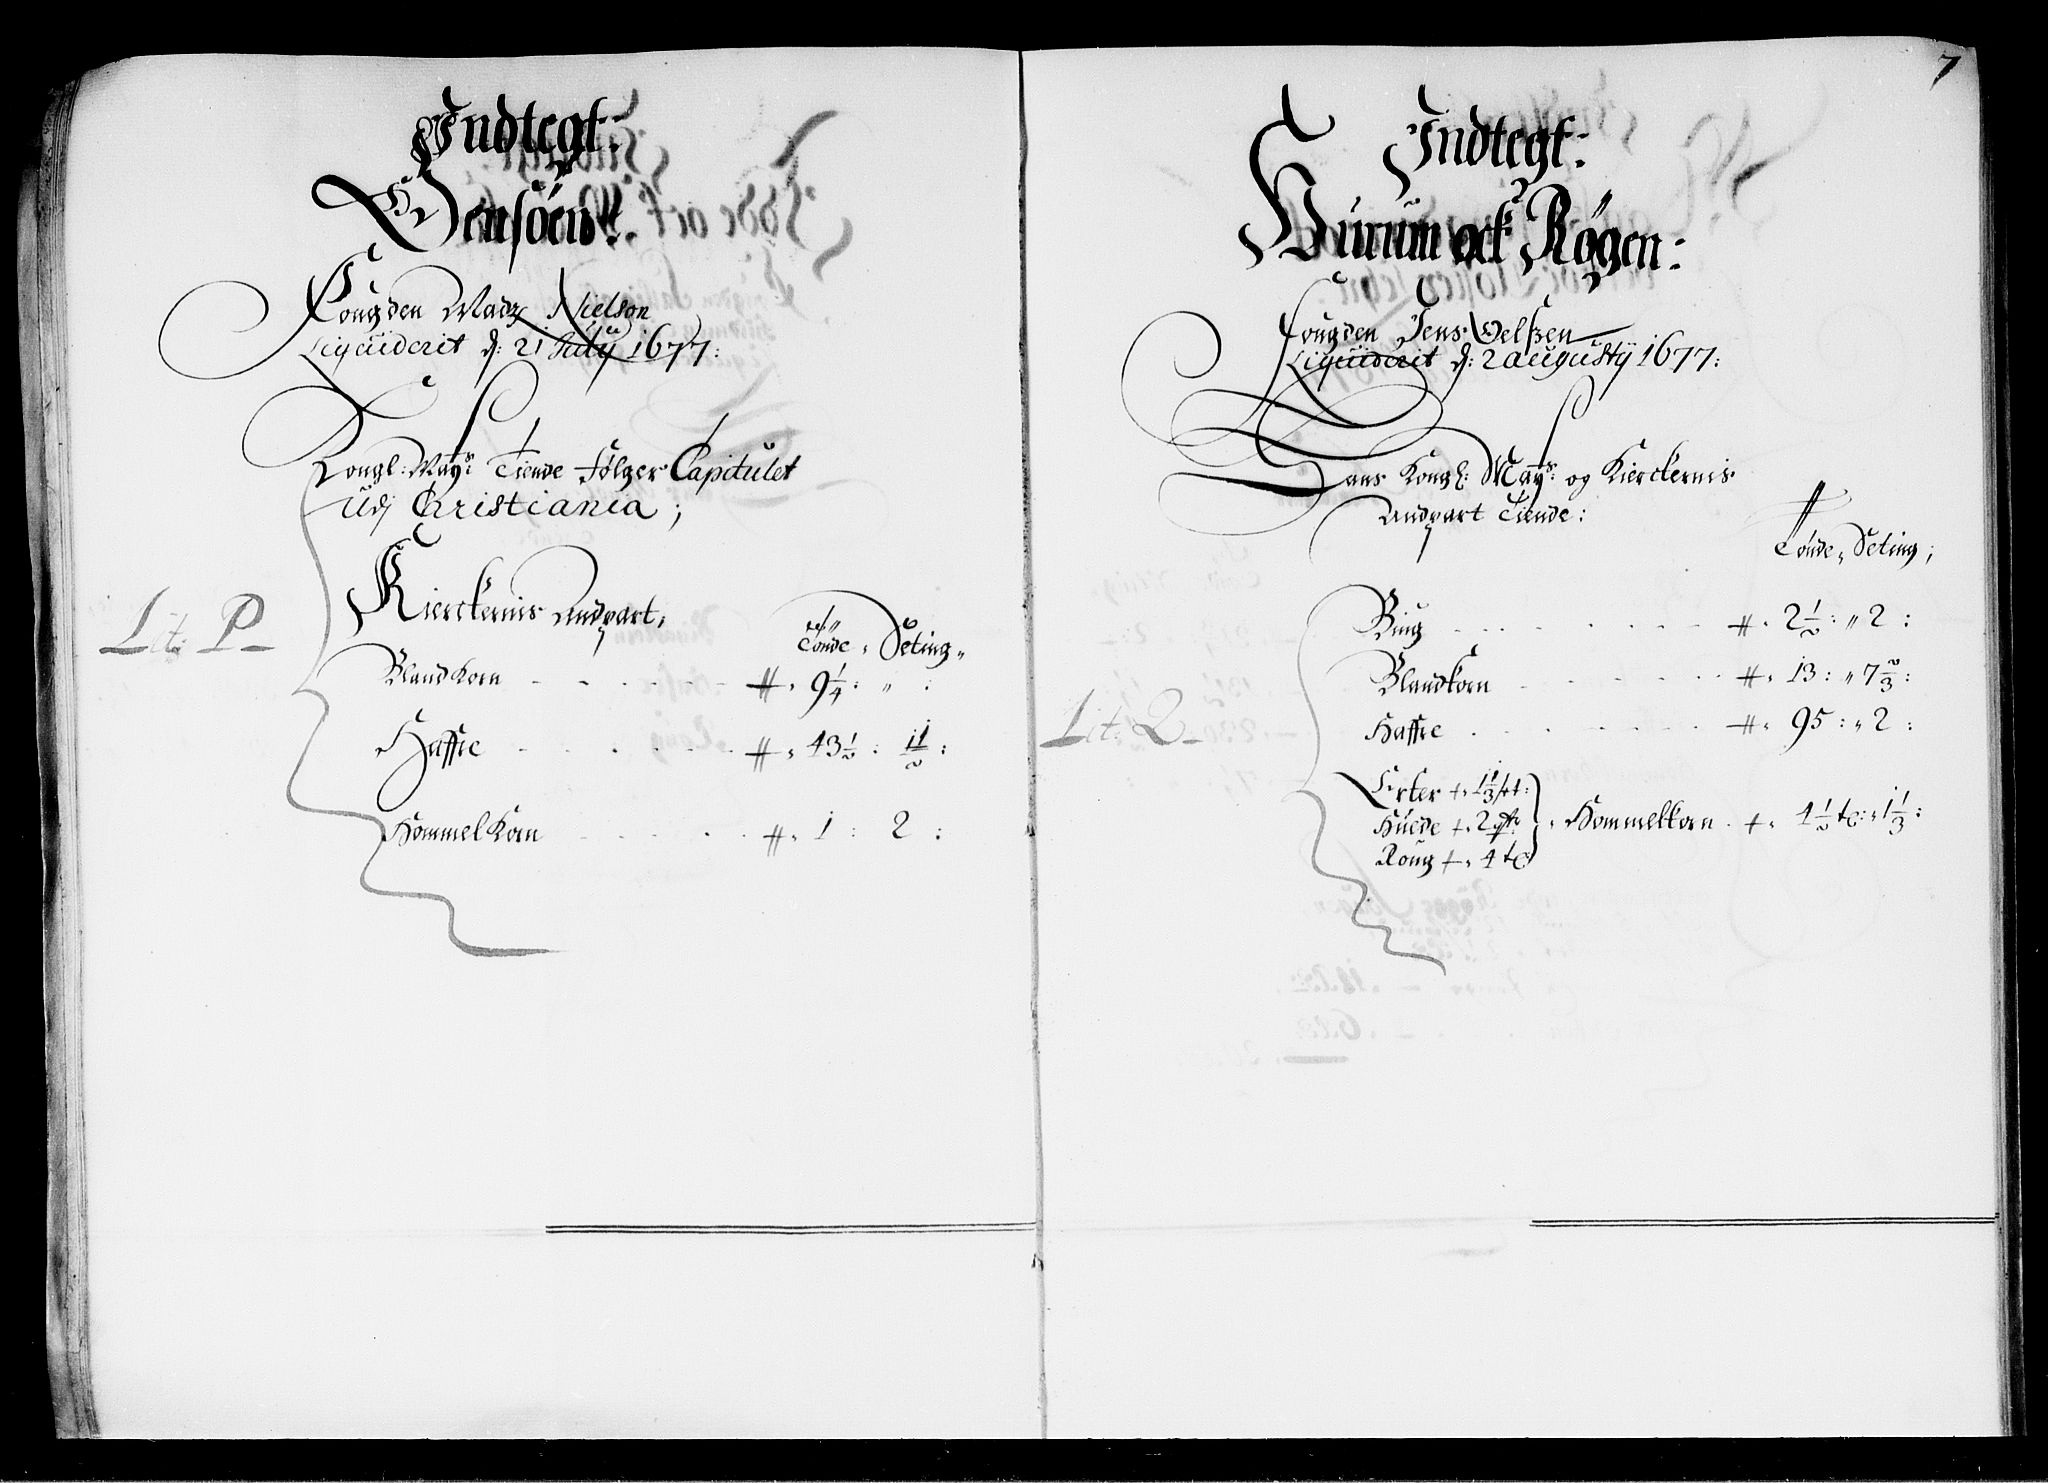 Indtegt:
Jensöen:
Fougden Madz Nielson
Liqviderit d: 21 July 1677:
Kongl: May:s Tiende følger Capitulet
udj Christiania;
Kierckernis Andpart,
Tønde „ Seting„
Lit: P
Blandkorn - - - - - 9 1/4 : „ :
Haffre - - - - - 43 1/2 :
Hommelkorn - - - - - 1 : 2 :
7
Indtegt:
Hurum ock Røgen:
Fougden Jens Oelßen
Liqviderit d: 2 Augusty 1677:
Hans Kongl: May:s og Kierckernis
Andpart Tiende:
Tønde „ Seting;
Biug - - - - - 2 1/2 : „ 2 :
Blandkorn - - - - - 13 : „ 7 2/3 :
Lit: Q
Haffre - - - - - 95 : „ 2 :
Erter 1 1/3 st:
Huede 2
Roug 4 tø
Hommelkorn 4 1/2 tø: „ 1 1/3 :